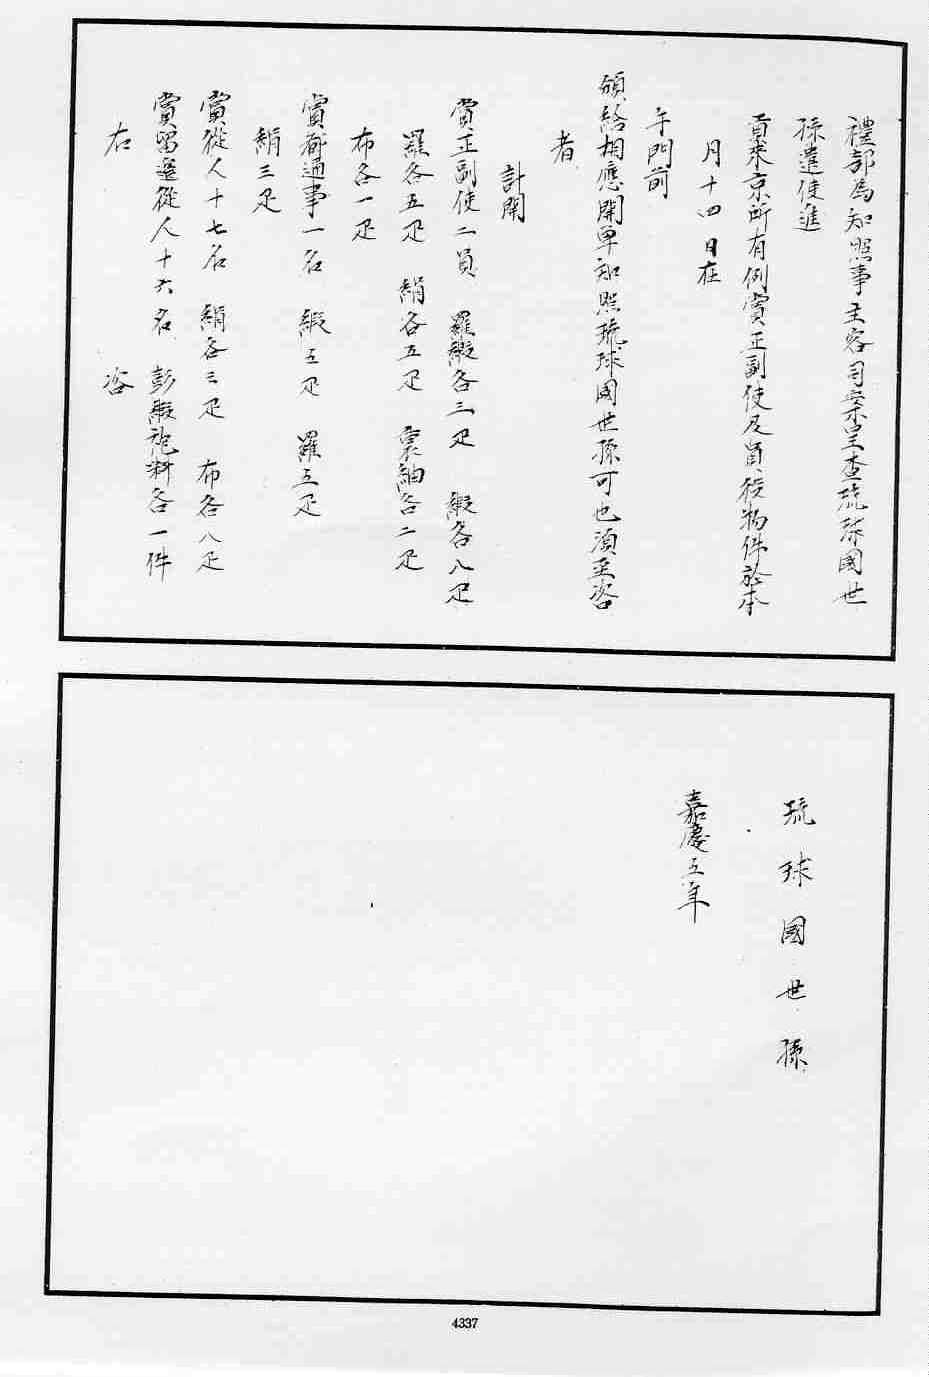 禮部為知照事主客司案呈查琉球國世
孫遣使進
貢來京所有例賞正副使及員役物件於本
月十四日在
午門前
頒給相應開单知照琉球國世孫可也須至咨
者
計開
賞正副使二員 羅緞各三疋 緞各八疋
羅各五疋 絹各五疋 裏紬各二疋
布各一疋
賞都通事一名 緞五疋 羅五疋
絹三疋
賞從人十七名 絹各三疋 布各八疋
賞留邊從人十六名 彭緞袍料各一件
右 咨
琉球國世孫
嘉慶五年
4337